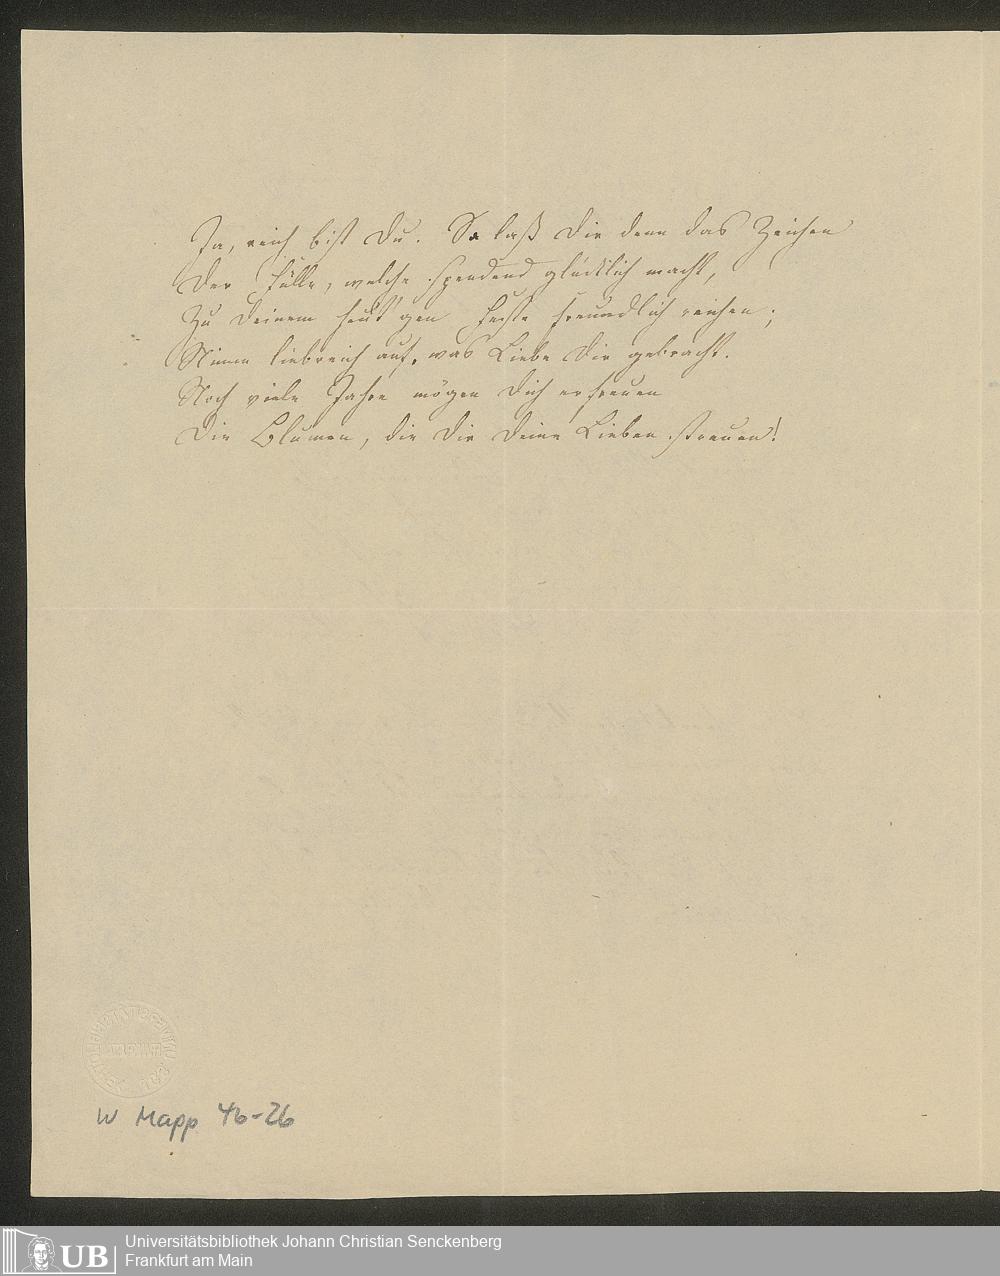 Ja, reich bist Du. So laß Dir denn das Zeichen
Der Fülle, welche spendend glücklich macht,
Zu Deinem heut'gen Feste freundlich reichen;
Nimm liebreich auf, was Liebe Dir gebracht.
Noch viele Jahre mögen Dich erfreuen
Die Blumen, die Dir Deine Lieben streuen!
W Mapp 46-26
UB
Universitätsbibliothek Johann Christian Senckenberg
Frankfurt am Main